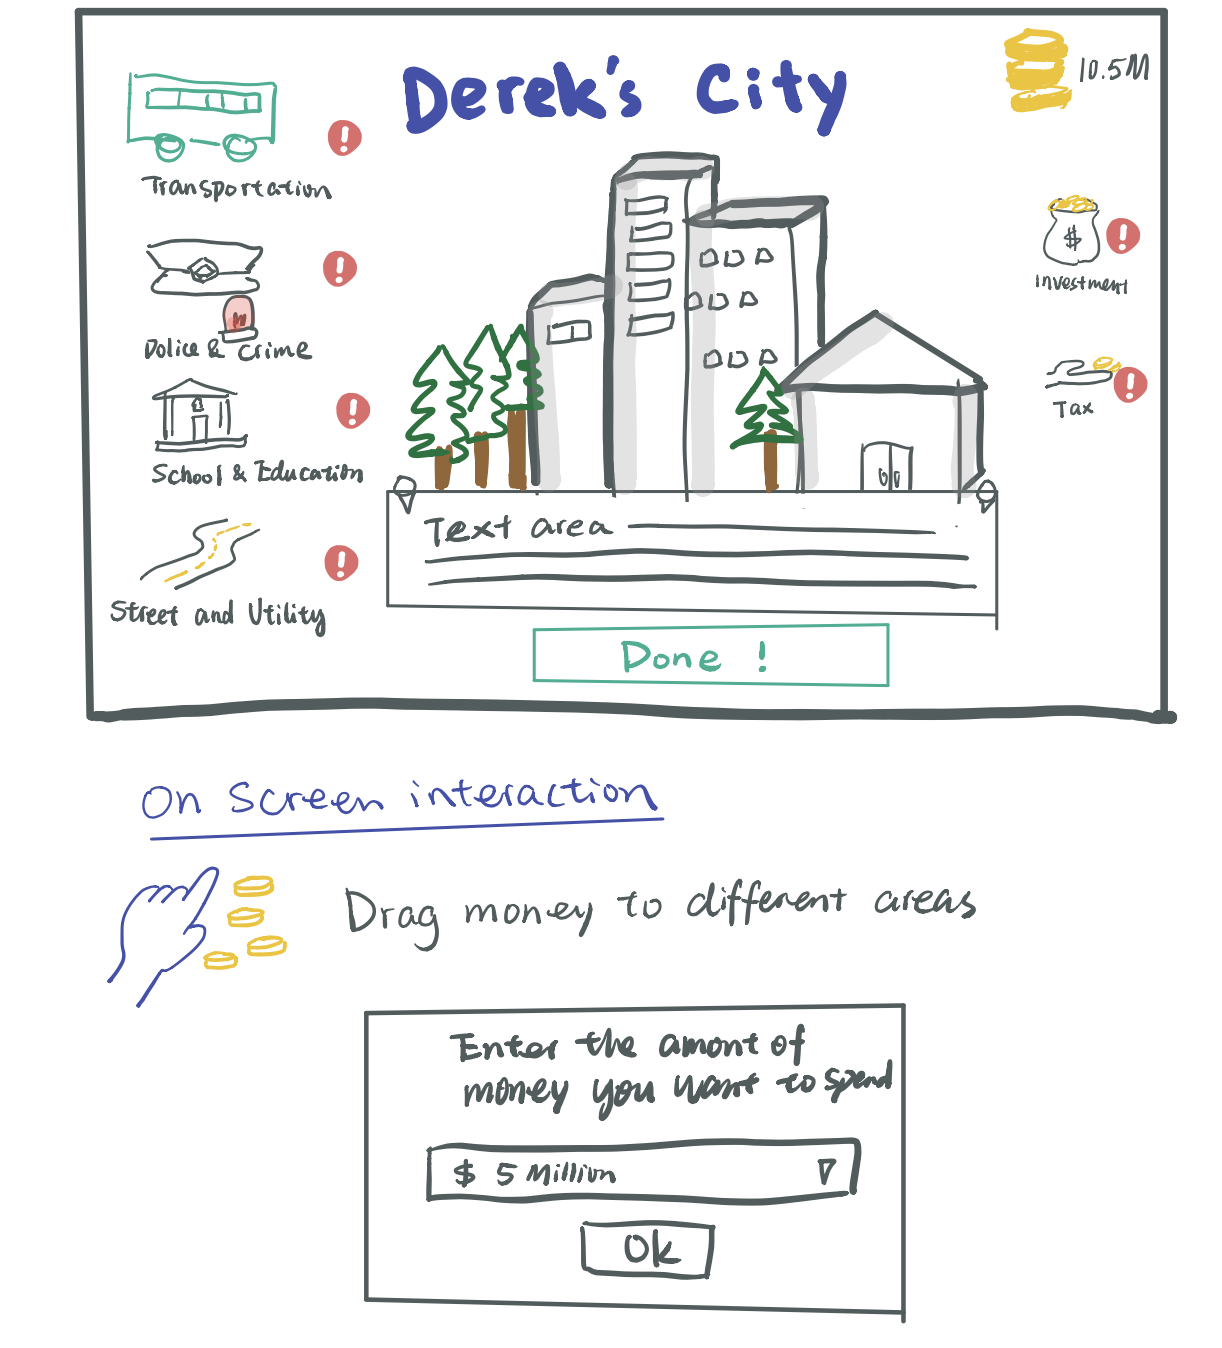 Derek's City
10.5M
Transportation
Police & Crime
School & Education
Street and Utility
$
Investment
Tax
Text area
Done !
On Screen interaction
Drag money to different areas
Enter the amont of
money you want to spend
$ 5 Million
Ok